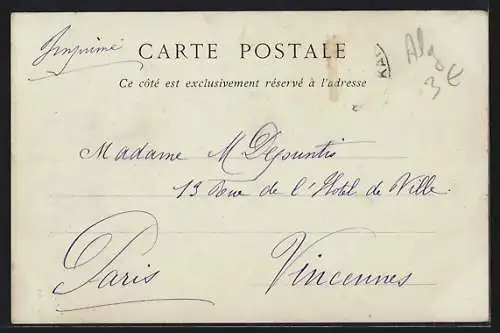 Imprimé
CARTE POSTALE
Ce côté est exclusivement réservé à l'adresse
Alg
3 €
Madame M Depuntis
13 Rue de l'Hotel de Ville.
Paris Vincennes